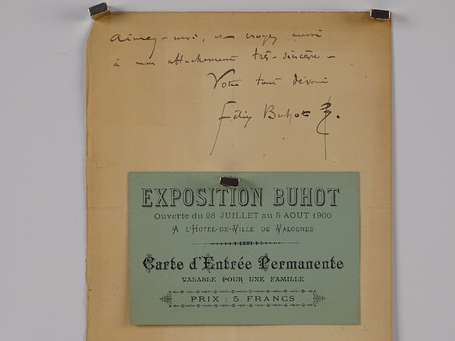 aimez-moi, et croyez aussi
à mon attachement très-sincère -
Votre tout dévoué
Félix Buhot
EXPOSITION BUHOT
Ouverte du 28 JUILLET au 5 AOUT 1900
A L'HOTEL-DE-VILLE DE VALOGNES
Carte d'Entrée Permanente
VALABLE POUR UNE FAMILLE
PRIX : 5 FRANCS